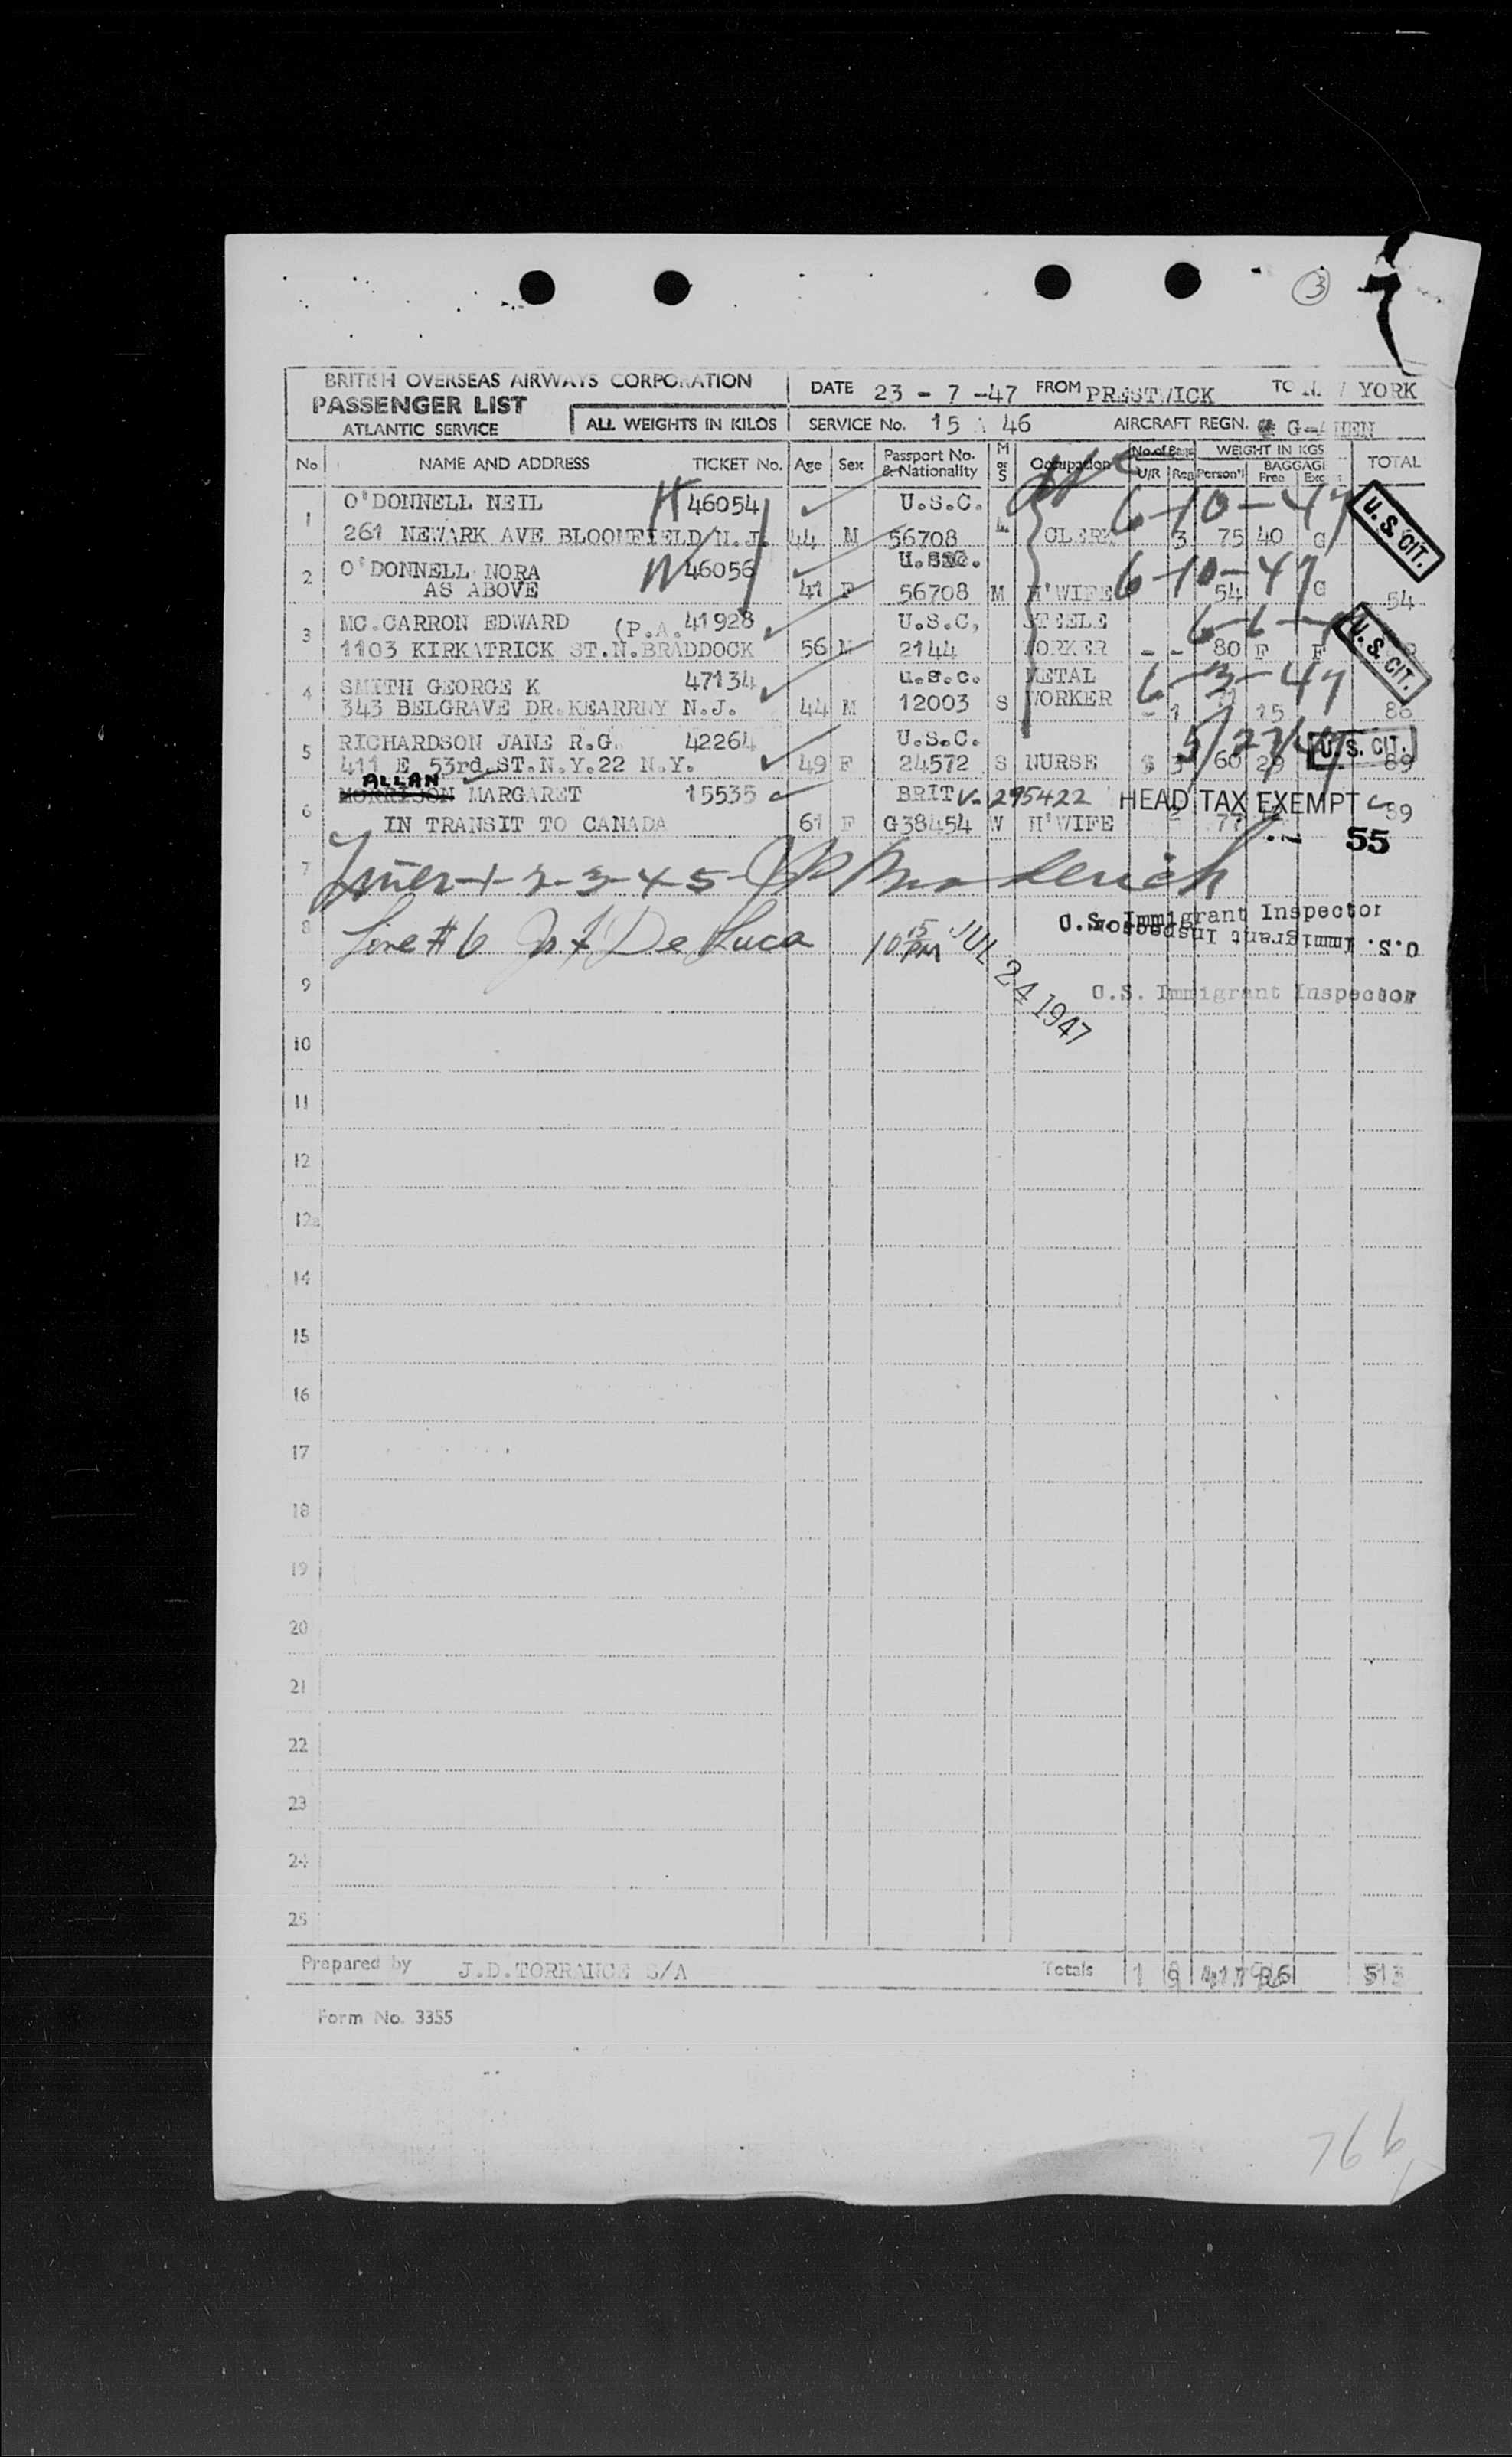 3
BRITISH OVERSEAS AIRWAYS CORPORATION
PASSENGER LIST
ATLANTIC SERVICE
ALL WEIGHTS IN KILOS
DATE 23 - 7 -47 FROM PRESTWICK TO YORK
SERVICE No. 15 46 AIRCRAFT REGN.
No NAME AND ADDRESS TICKET No. Age Sex Passport No. & Nationality M or S Occupation No. of Bags U/R Reg WEIGHT IN KGS Person'l BAGGAGE Free Exc TOTAL
1 O'DONNELL NEIL 46054 U.S.C. 6-10-47
261 NEWARK AVE BLOOMFIELD N.J. 44 M 56708 CLERK 3 75 40 G
U.S. CIT.
2 O'DONNELL NORA 46056 U.S.C. 6-10-47
AS ABOVE 41 F 56708 M H'WIFE 54 G 54
3 MC.CARRON EDWARD (P.A. 41928 U.S.C, STEELE
1103 KIRKATRICK ST.N.BRADDOCK 56 M 2144 WORKER - - 80 F F
U.S. CIT.
4 SMITH GEORGE K 47134 U.S.C. METAL 6-3-47
343 BELGRAVE DR.KEARRNY N.J. 44 M 12003 S WORKER - 1 71 15 86
5 RICHARDSON JANE R.G. 42264 U.S.C. 5/27/47 U.S. CIT.
411 E 53rd ST.N.Y.22 N.Y. 49 F 24572 S NURSE 3 60 29 89
ALLAN
6 MORRISON MARGARET 15535 BRIT V-295422 HEAD TAX EXEMPT
IN TRANSIT TO CANADA 61 F G38454 W H'WIFE 77
55
7 Lines 1-2-3-4-5
8 Line #6 De Luca 10 15 PM JUL 24 1947
U.S. Immigrant Inspector
U.S. Immigrant Inspector
9 U.S. Immigrant Inspector
10
11
12
12a
14
15
16
17
18
19
20
21
22
23
24
25
Prepared by J.D.TORRANCE S/A Totals 1 9 417 96 513
Form No. 3355
766